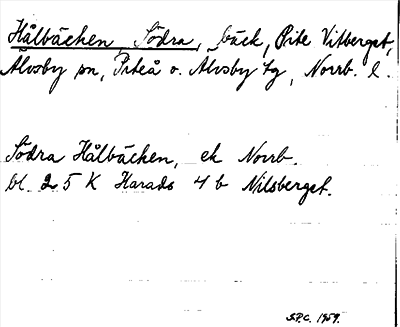 Hålbäcken, Södra, bäck, Pite Vitberget,
Älvsby sn, Piteå o. Älvsby tg, Norrb. l.
Södra Hålbäcken, ek Norrb.
bl. 25 K Harads 4 b Nilsberget.
S.P.C. 1959.